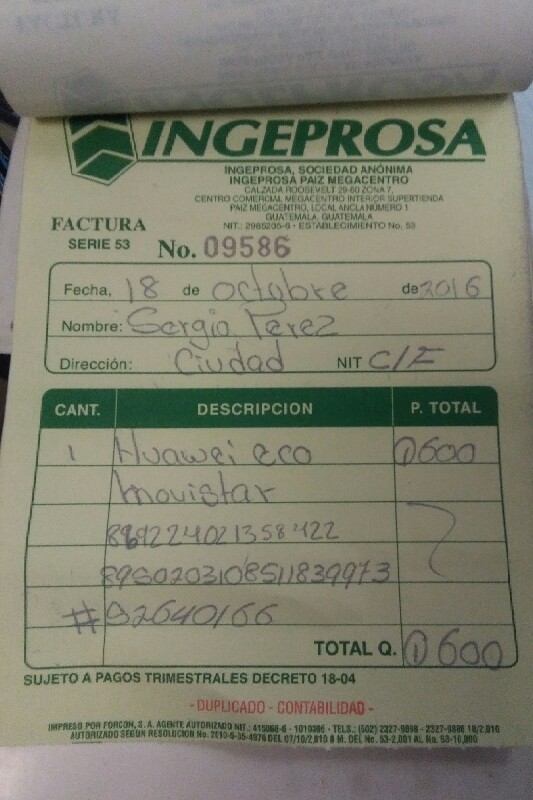 INGEPROSA
INGEPROSA, SOCIEDAD ANÓNIMA
INGEPROSA PAIZ MEGACENTRO
CALZADA ROOSEVELT 29-60 ZONA 7,
CENTRO COMERCIAL MEGACENTRO INTERIOR SUPERTIENDA
PAIZ MEGACENTRO, LOCAL ANCLA NÚMERO 1
GUATEMALA, GUATEMALA
NIT.: 2985205-6 • ESTABLECIMIENTO No. 53
FACTURA
SERIE 53 No. 09586
Fecha, 18 de octubre de 2016
Nombre: Sergio Perez
Dirección: Ciudad NIT C/F
CANT. DESCRIPCION P. TOTAL
1 Huawei eco Q600
movistar
8950203108511839973
#52640166
TOTAL Q. Q600
SUJETO A PAGOS TRIMESTRALES DECRETO 18-04
- DUPLICADO - CONTABILIDAD -
IMPRESO POR FORCON, S. A. AGENTE AUTORIZADO NIT.:
AUTORIZADO SEGUN RESOLUCION No.